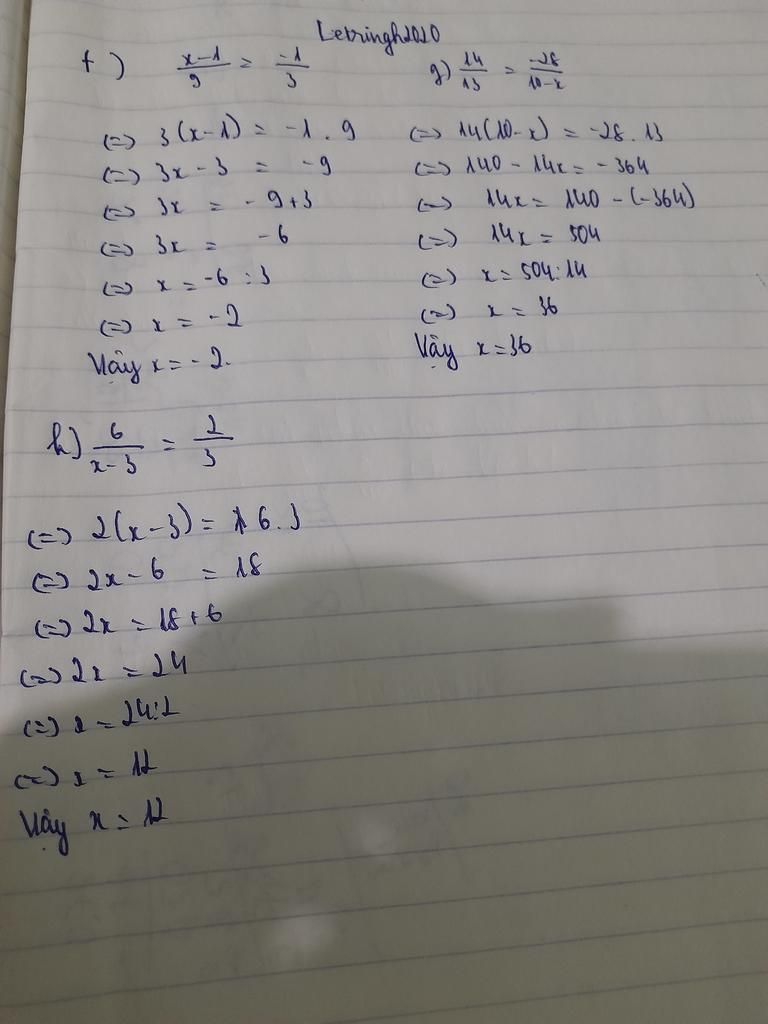 Letringh2020
f) \frac{x-1}{9} = \frac{-1}{3}
(=) 3(x-1) = -1 . 9
(=) 3x - 3 = -9
(=) 3x = -9+3
(=) 3x = -6
(=) x = -6 : 3
(=) x = -2
Vậy x = -2.
g) \frac{14}{13} = \frac{-28}{10-x}
(=) 14(10-x) = -28 . 13
(=) 140 - 14x = -364
(=) 14x = 140 - (-364)
(=) 14x = 504
(=) x = 504:14
(=) x = 36
Vậy x = 36
h) \frac{6}{x-3} = \frac{2}{3}
(=) 2(x-3) = 6.3
(=) 2x - 6 = 18
(=) 2x = 18+6
(=) 2x = 24
(=) x = 24:2
(=) x = 12
Vậy x = 12